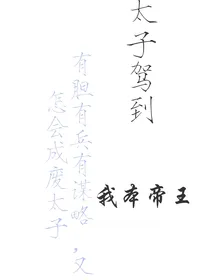 太子驾到
有胆有兵有谋略，又
怎会成废太子
我本帝王